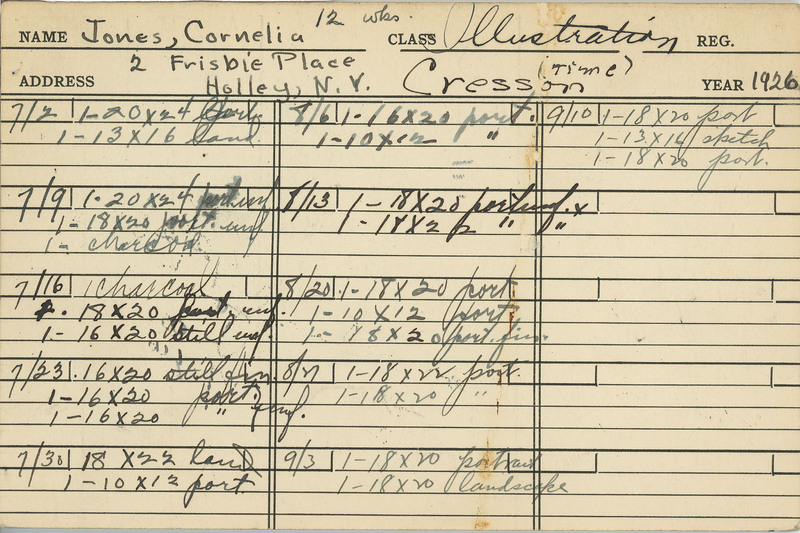 12 wks.
NAME Jones, Cornelia CLASS Illustration REG.
2 Frisbie Place (Time)
ADDRESS Holley, N.Y. Cresson YEAR 1926
7/2 1-20x24 port.
1-13x16 land.
7/9 1-20x24 port unf
1-18x20 port. unf
1- charcoal.
7/16 1 charcoal
18x20 port. unf.
1-16x20 still unf.
7/23 1.16x20 still fin.
1-16x20 port.
1-16x20 " unf.
7/30 18x22 land
1-10x12 port.
8/6 1-16x20 port.
1-10x12 "
8/13 1-18x20 port unf. x
1-18x22 " "
8/20 1-18x20 port
1-10x12 port.
1-18x20 port. fin.
8/27 1-18x22 port.
1-18x20 "
9/3 1-18x20 portrait
1-18x20 landscape
9/10 1-18x20 port
1-13x16 sketch
1-18x20 port.